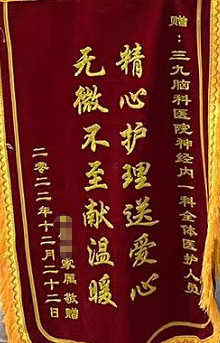 赠：三九脑科医院神经内一科全体医护人员
精心护理送爱心
无微不至献温暖
家属 敬赠
二零二二年十二月二十二日